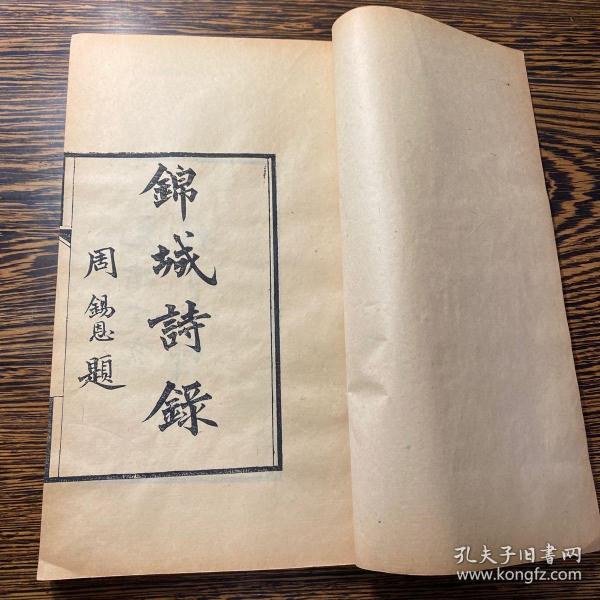 錦城詩錄
周錫恩題
孔夫子旧书网
www.kongfz.com